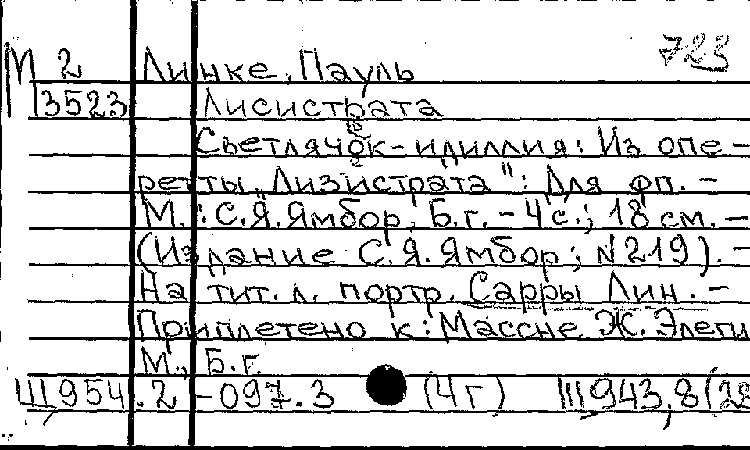 723
М 2 Линке, Пауль
13523 Лисистрата
Светлячок-идиллия: Из опе-
ретты „Лизистрата": Для фп. -
М.: С.Я.Ямбор, Б.г. - 4 с.; 18 см. -
(Издание С.Я.Ямбор; N 219). -
На тит. л. портр. Сарры Лин. -
Приплетено к: Массне Ж. Элеги
М., Б.г.
Ш954.2-097.3 (4г) Ш943,8(28